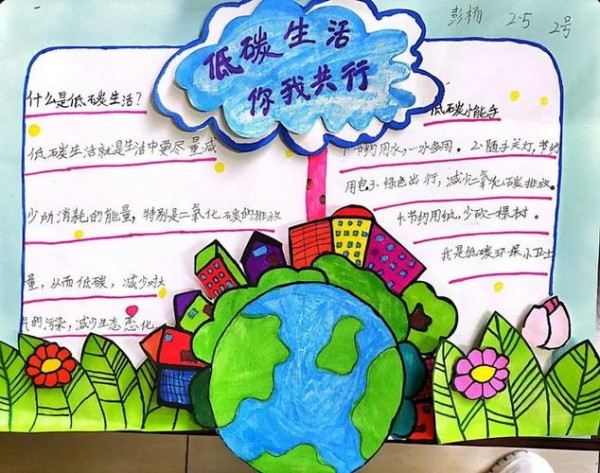 彭杨 2-5 2号
低碳生活
你我共行
什么是低碳生活?
低碳生活就是生活中要尽量减
少所消耗的能量,特别是二氧化碳的排放
量,从而低碳,减少对大
气的污染,减少生态恶化
低碳小能手
1.节约用水,一水多用。2.随手关灯,节约
用电3.绿色出行,减少二氧化碳排放。
4.节约用纸,少砍一棵树。
我是低碳环保小卫士